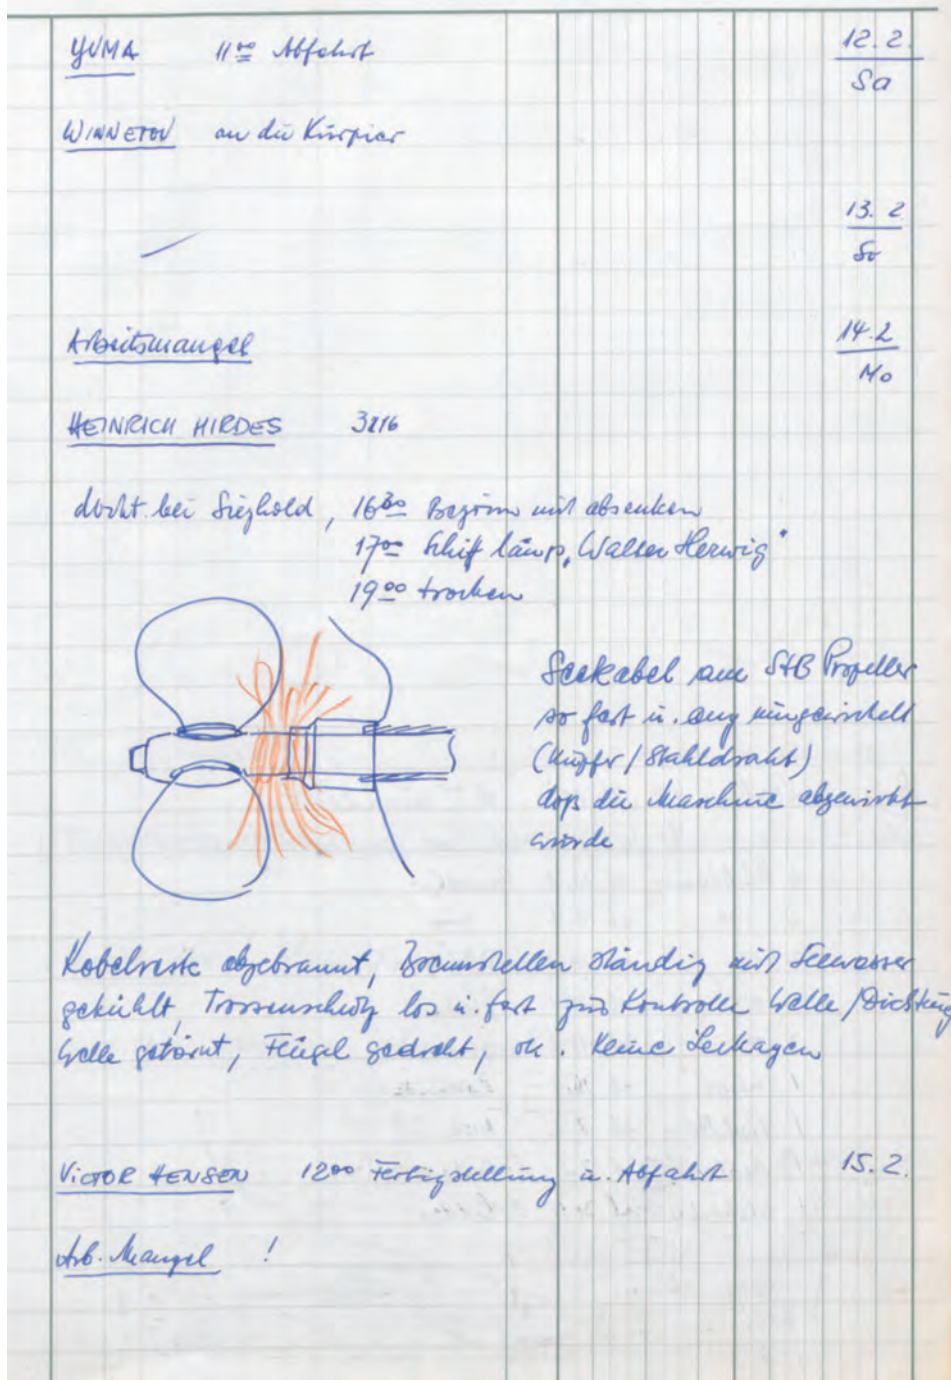 YUMA 11⁰⁰ Abfahrt 12.2.
Sa
WINNETOU an die Kürpier
13. 2
So
Arbeitsmangel 14.2
Mo
HEINRICH HIRDES 3216
dockt bei Sieghold, 16³⁰ Beginn mit absenken
17⁰⁰ Schiff längs „Walter Herwig"
19⁰⁰ trocken
Seekabel am StB Propeller
so fest u. eng umgewickelt
(Kupfer/Stahldraht)
daß die Maschine abgewürgt
würde
Kabelreste abgebrannt, Brennstellen ständig mit Seewasser
gekühlt, Trossenschutz los u. fest zur Kontrolle Welle/Dichtung
Welle getörnt, Flügel gedreht, ok. Keine Leckagen
VICTOR HENSEN 12⁰⁰ Fertigstellung u. Abfahrt 15.2.
Arb. Mangel !